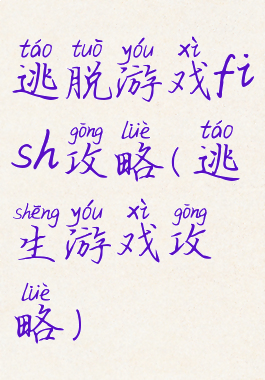 táo tuō yóu xì
逃脱游戏fi
gōng lüè táo
sh攻略(逃
shēng yóu xì gōng
生游戏攻
lüè
略)